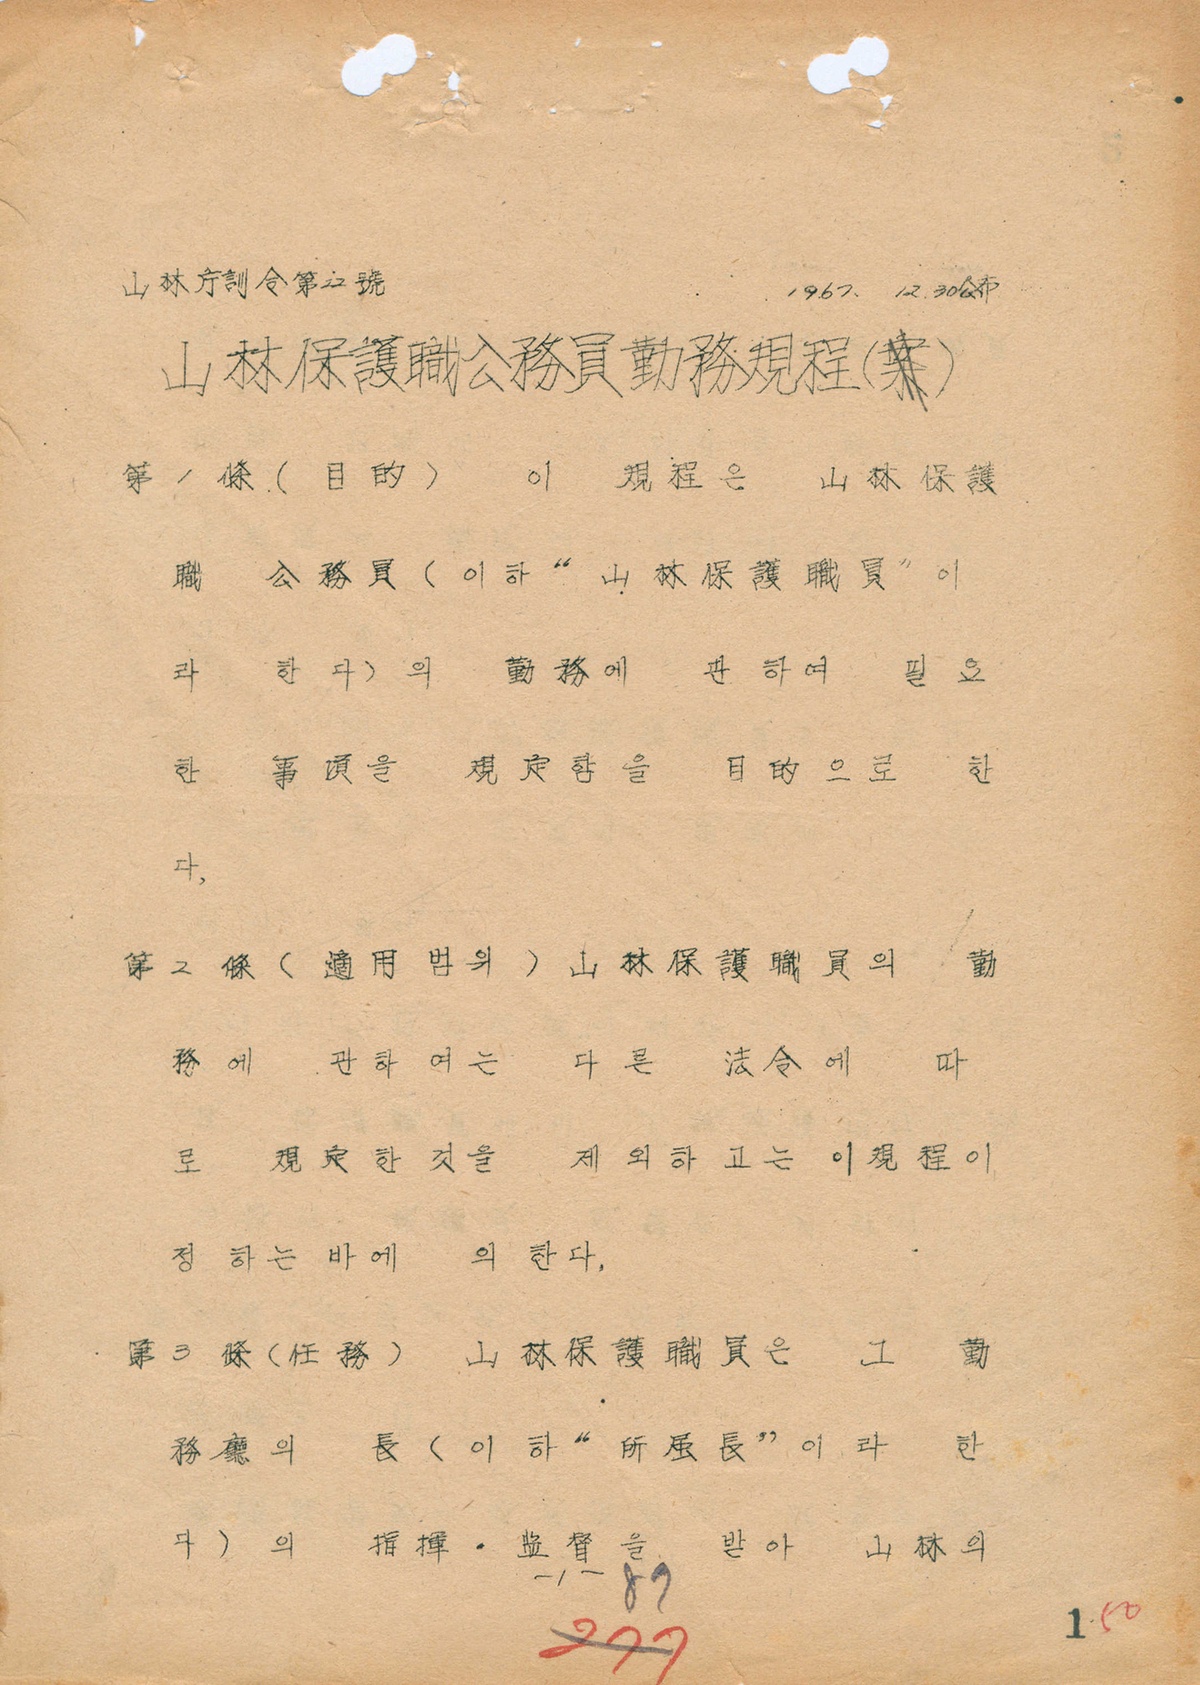 山林庁訓令第22號
1967. 12. 30公布
山林保護職公務員勤務規程(案)
第1條(目的) 이 規程은 山林保護
職 公務員(이하 “山林保護職員”이
라 한다)의 勤務에 관하여 필요
한 事項을 規定함을 目的으로 한
다.
第2條(適用범위) 山林保護職員의 勤
務에 관하여는 다른 法令에 따
로 規定한것을 제외하고는 이規程이
정하는바에 의한다.
第3條(任務) 山林保護職員은 그 勤
務廳의 長(이하 “所属長”이라 한
다)의 指揮·监督을 받아 山林의
-1-
89
277
1
50